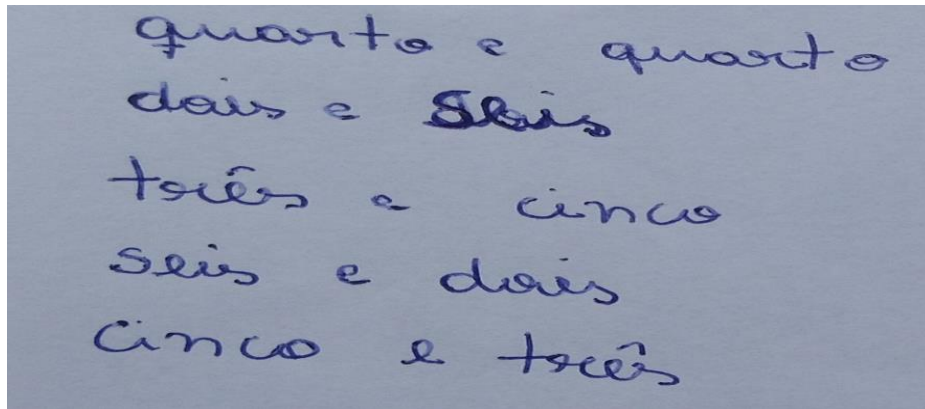 quarto e quarto
dois e seis
três e cinco
seis e dois
cinco e três